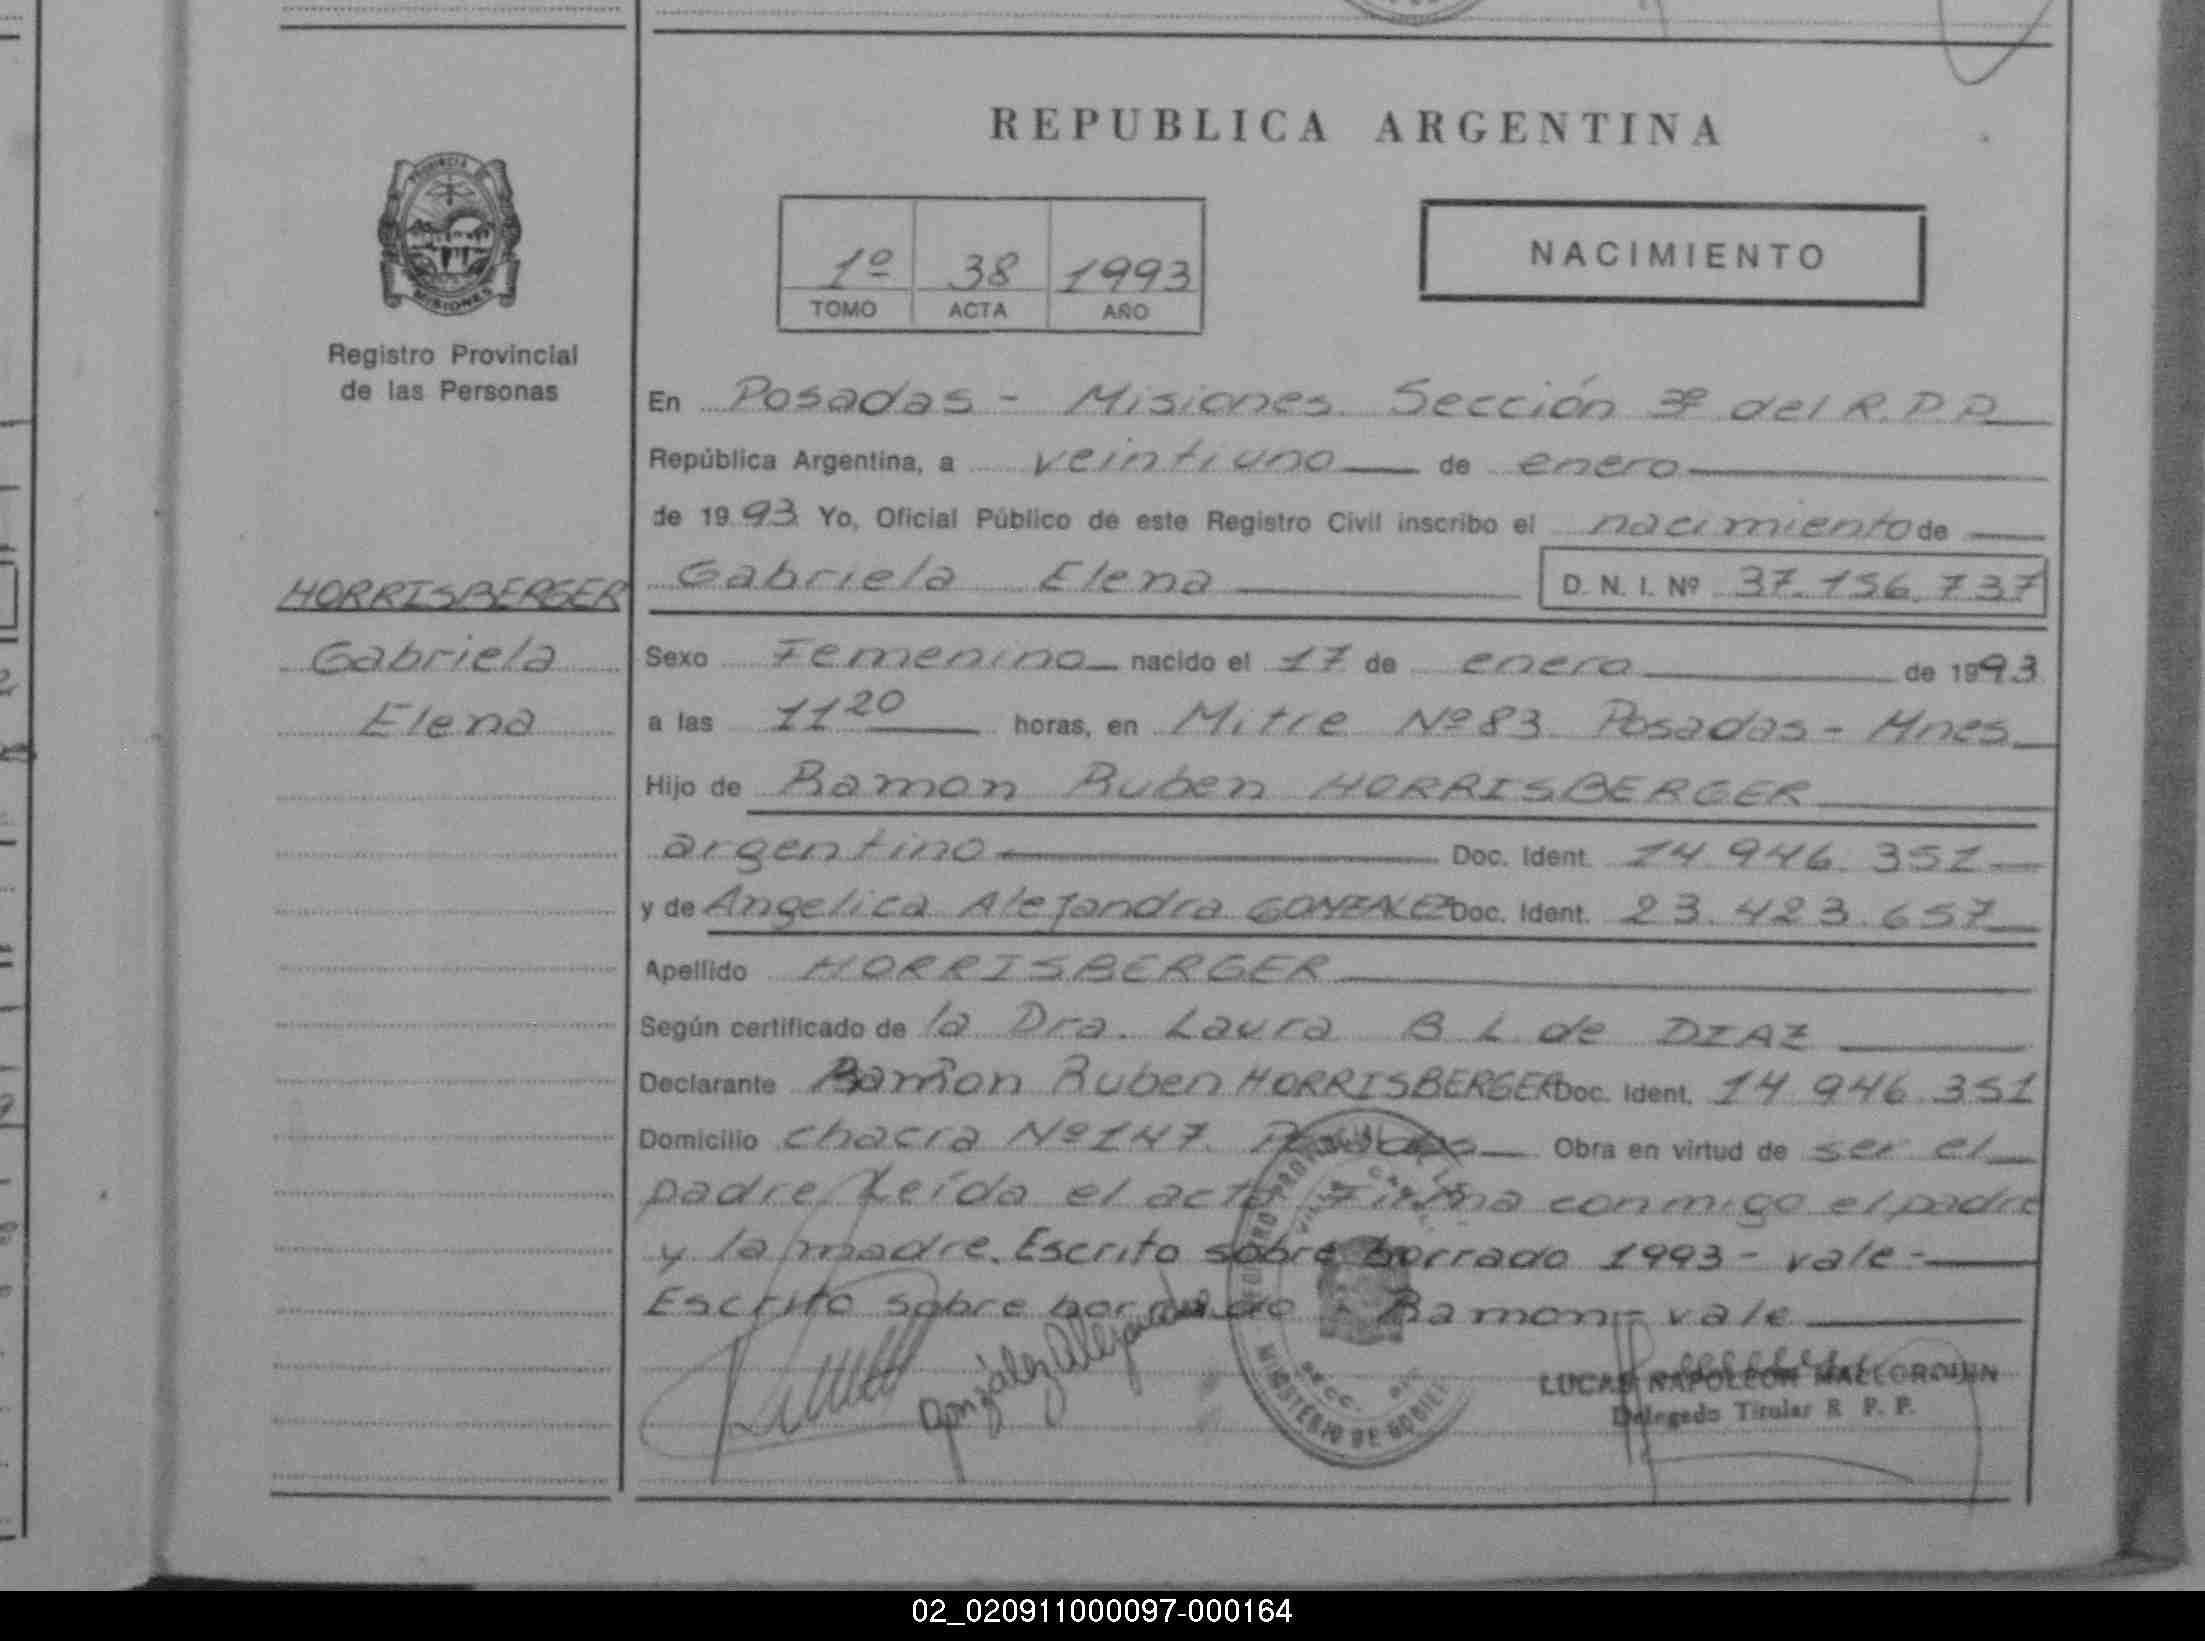 REPUBLICA ARGENTINA
PROVINCIA DE
MISIONES
Registro Provincial
de las Personas
1º 38 1993
TOMO ACTA AÑO
NACIMIENTO
En Posadas - Misiones. Sección 3ª del R.P.P.
República Argentina, a veintiuno de enero
de 1993 Yo, Oficial Público de este Registro Civil inscribo el nacimiento de
Gabriela Elena D. N. I. Nº 37.156.737
HORRISBERGER
Gabriela
Elena
Sexo Femenino nacido el 17 de enero de 1993
a las 11 20 horas, en Mitre Nº 83 Posadas - Mnes
Hijo de Ramon Ruben HORRISBERGER
argentino Doc. Ident. 14.946.351
y de Angelica Alejandra GONZALEZ Doc. Ident. 23.423.657
Apellido HORRISBERGER
Según certificado de la Dra. Laura B L de DIAZ
Declarante Ramon Ruben HORRISBERGER Doc. Ident. 14.946.351
Domicilio chacra Nº 147. Posadas Obra en virtud de ser el
padre. Leída el acta firma conmigo el padre
y la madre. Escrito sobre borrado 1993 - vale -
Escrito sobre borrado Ramon - vale
González Alejandra
MINISTERIO DE GOBIE
LUCAS NAPOLEON
Delegado Titular R. P. P.
02_020911000097-000164